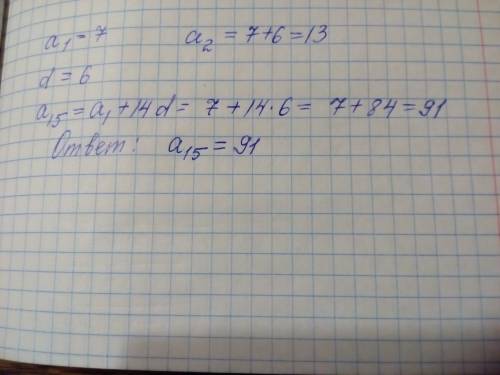 a₁ = 7 a₂ = 7+6 = 13
d = 6
a₁₅ = a₁ + 14d = 7 + 14·6 = 7 + 84 = 91
Ответ: a₁₅ = 91